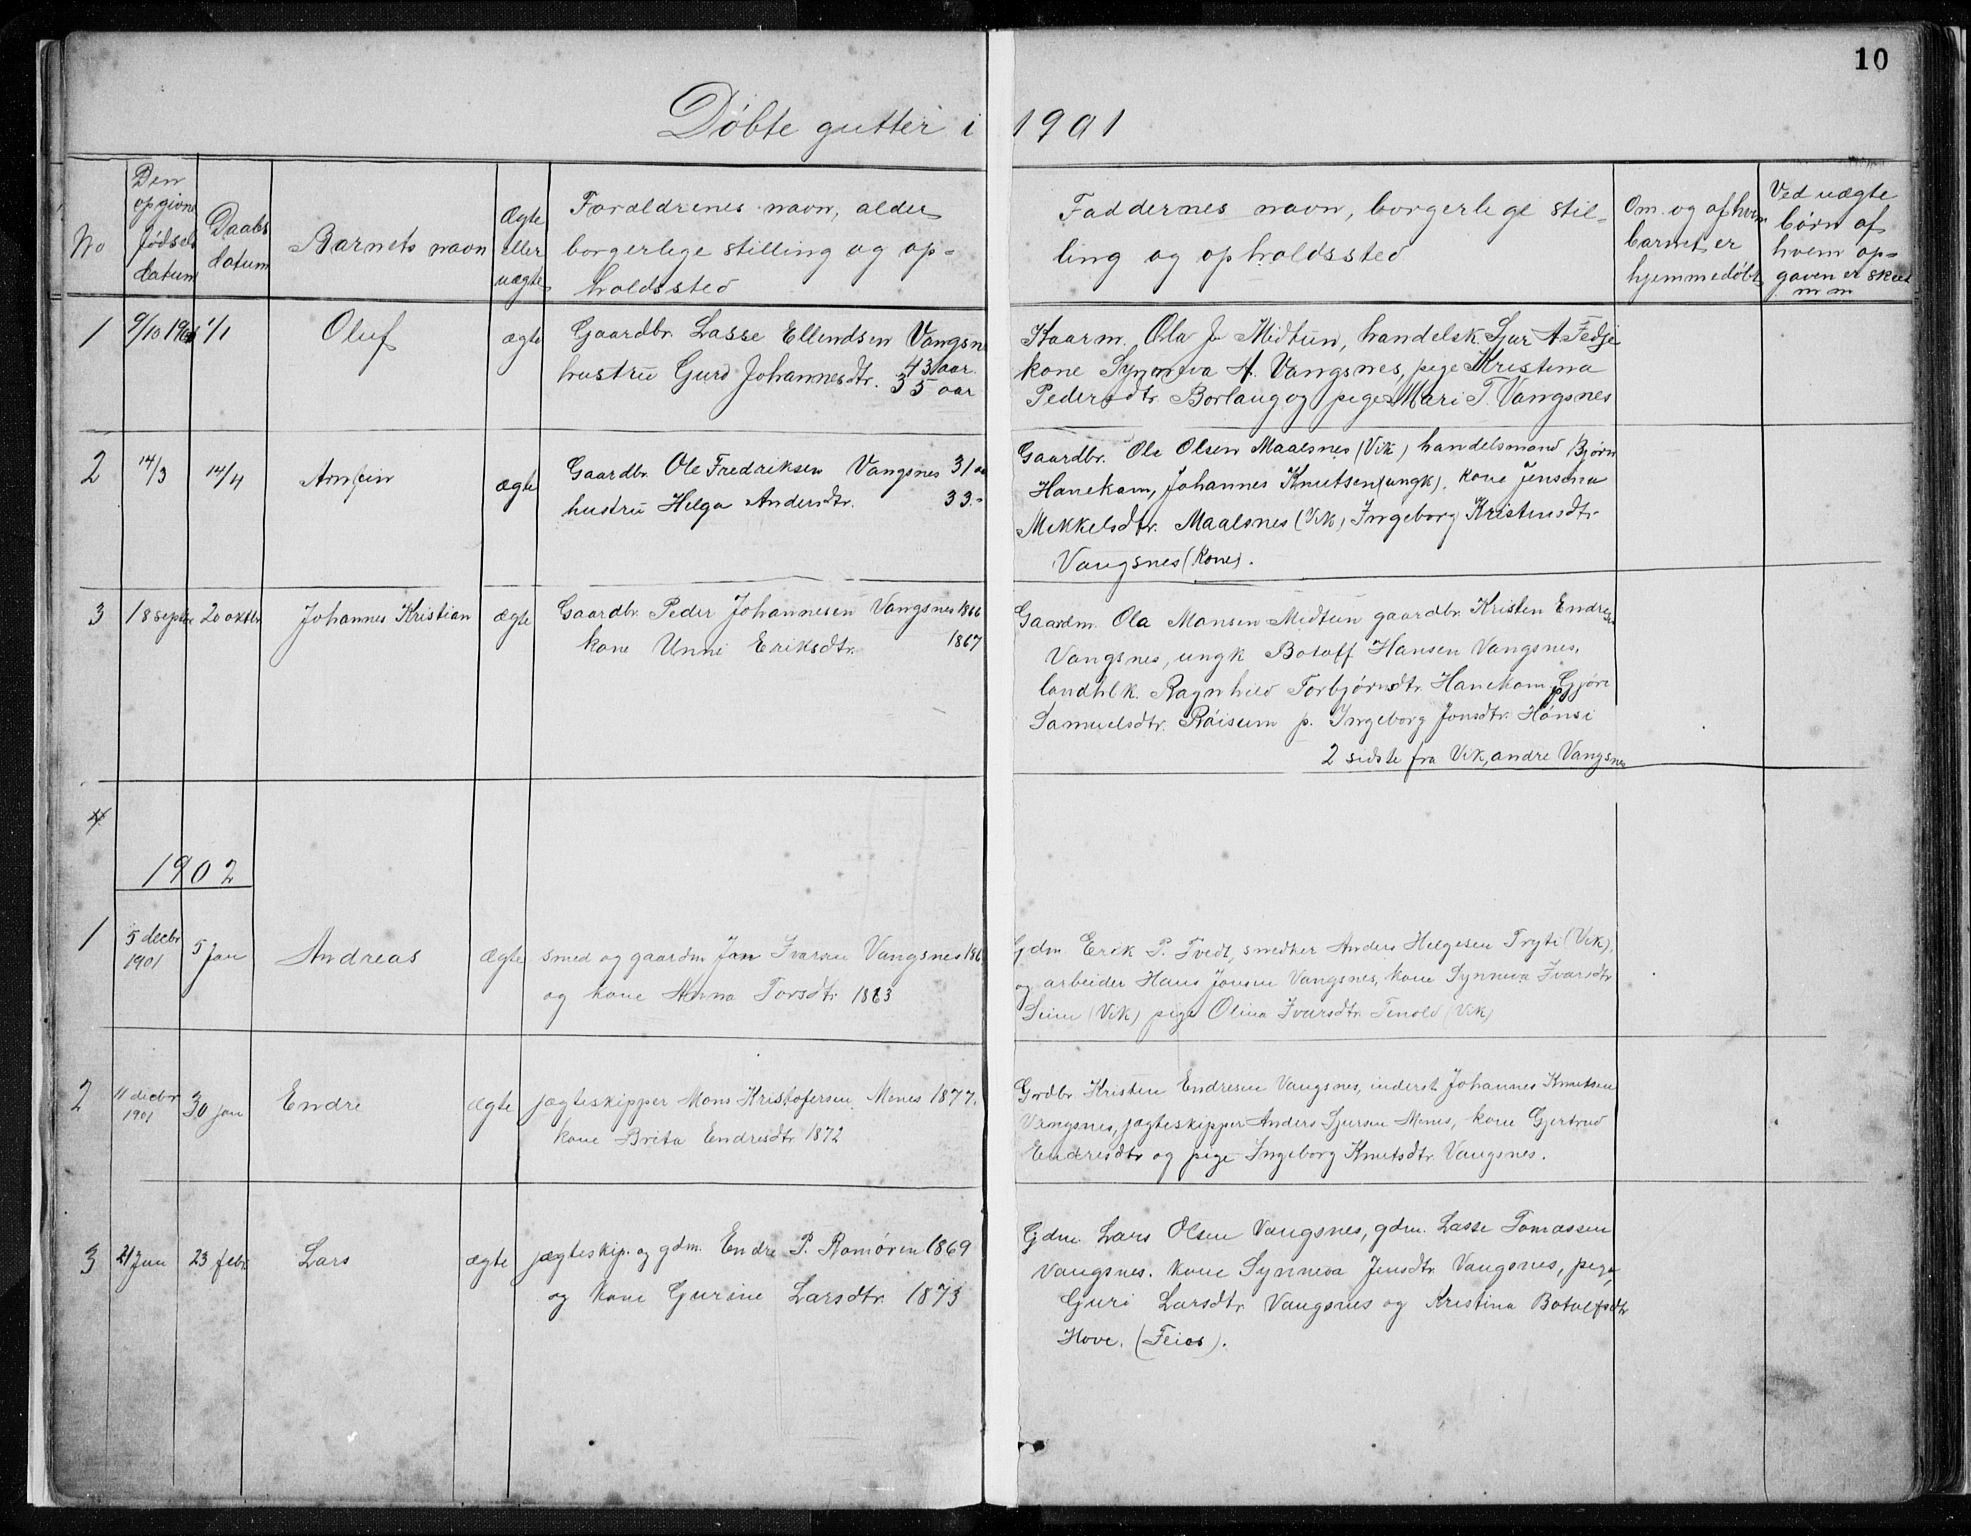 10
Døbte gutter i 1901
No
Den opgivne fødsels datum
Daabs datum
Barnets navn
Ægte eller uægte
Forældrenes navn, alder
borgerlige stilling og op-
holdssted
Faddernes navn, borgerlige stil-
ling og opholdssted
Om og af hvem
barnet er
hjemmedøbt
Ved uægte
børn af
hvem op-
gaven er sked
m m
1 9/10 1900 1/1 Oluf ægte Gaardbr. Lasse Ellendsen Vangsnes
43 aar
hustru Gurd Johannesdtr. 35 aar
Kaarm. Ola J. Midtun, handelsk. Sjur A Fedje
kone Synneva A. Vangsnes, pige Kristina
Pedersdtr. Borlaug og pige Mari T. Vangsnes
2 14/3 14/4 Arnfin ægte Gaardbr. Ole Fredriksen Vangsnes 31 aar
hustru Helga Andersdtr. 33 -
Gaardbr. Ole Olsen Maalsnes (Vik) handelsmand Bjørn
Hanekam, Johannes Knutsen (ungk). kone Jensina
Mikkelsdtr. Maalsnes (Vik) Ingeborg Kristensdtr
Vangsnes (kone).
3 18 septbr 20 oktbr Johannes Kristian ægte Gaardbr. Peder Johannesen Vangsnes 1866
kone Unni Eriksdtr. 1867
Gaardm. Ola Monsen Midtun gaardbr. Kristen Endresen
Vangsnes, ungk Botolf Hansen Vangsnes,
landhlk. Ragnhild Torbjørnsdtr. Hanekam, p. Gjøri
Samuelsdtr. Røisum p. Ingeborg Jonsdtr. Hønsi
2 sidste fra Vik, andre Vangsnes
4
1902
1 5 decbr 1901 5 Jan Andreas Ægte smed og gaardm Jon Ivarsen Vangsnes 186
og kone Anna Torsdtr. 1863
Gdm. Erik P. Tvedt, smedker Anders Helgesen Tryti (Vik),
og arbeider Hans Jonsen Vangsnes, kone Synneva Ivarsdtr
Seim (Vik) pige Olina Ivarsdtr. Tenold (Vik)
2 11 decbr 1901 30 jan Endre ægte jægteskipper Mons Kristofersen Menes 1877.
kone Brita Endresdtr. 1872
Grdbr. Kristen Endresen Vangsnes, inderst Johannes Knutsen
Vangsnes, jægteskipper Anders Sjursen Menes, kone Gjertrud
Endresdtr og pige Ingeborg Knutsdtr. Vangsnes.
3 21 Jan 23 febr. Lars ægte jægteskip. og gdm. Endre P. Romøren 1869
og kone Gurine Larsdtr. 1873
Gdm. Lars Olsen Vangsnes, gdm. Lasse Tomassen
Vangsnes. kone Synneva Jensdtr. Vangsnes, pige
Guri Larsdtr. Vangsnes og Kristina Botolfsdtr
Hove. (Feios).